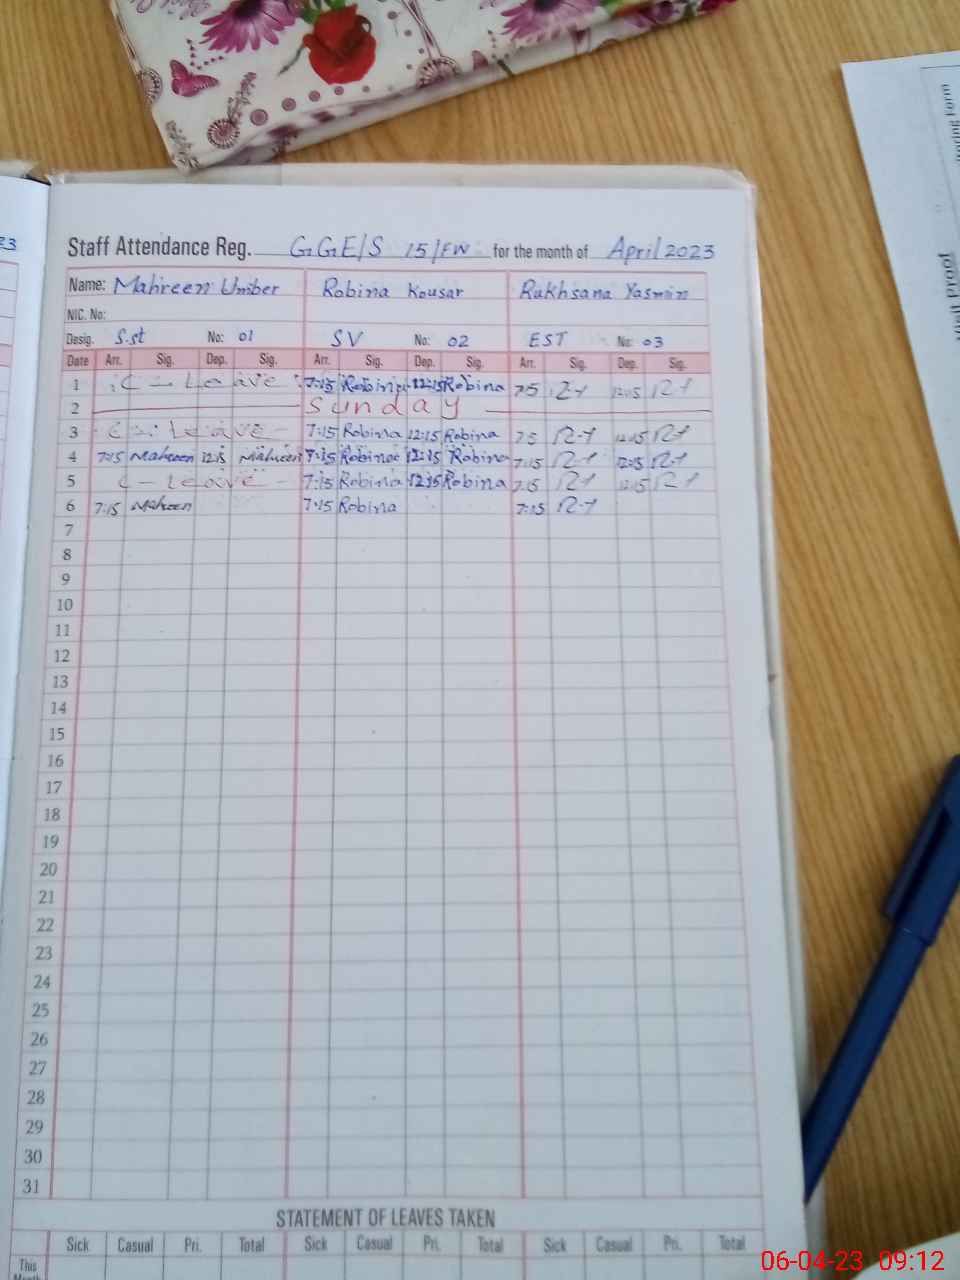 23
ioring Form
Visit Proof
Staff Attendance Reg. G.G.E/S 15/FW for the month of April 2023
Name: Mahreen Umber Robina Kousar Rukhsana Yasmin
NIC. No:
Desig. S.st No: 01 SV No: 02 EST No: 03
Date Arr. Sig. Dep. Sig. Arr. Sig. Dep. Sig. Arr. Sig. Dep. Sig.
1 C - Leave 7:15 Robina 12:15 Robina 7:15 R-Y 12:15 R-Y
2 Sunday
3 C - Leave - 7:15 Robina 12:15 Robina 7:15 R-Y 12:15 R-Y
4 7:15 Mahreen 12:15 Mahreen 7:15 Robina 12:15 Robina 7:15 R-Y 12:15 R-Y
5 C - Leave - 7:15 Robina 12:15 Robina 7:15 R-Y 12:15 R-Y
6 7:15 Mahreen 7:15 Robina 7:15 R-Y
7
8
9
10
11
12
13
14
15
16
17
18
19
20
21
22
23
24
25
26
27
28
29
30
31
STATEMENT OF LEAVES TAKEN
Sick Casual Pri. Total Sick Casual Pri. Total Sick Casual Pri. Total
This
Month
06-04-23 09:12